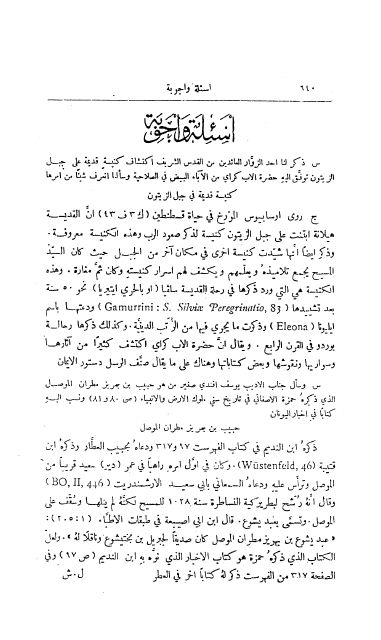 ٦٤٠ اسئلة واجوبة
اسئلة واجوبة
س ذكر لنا احد الزوّار العائدين من القدس الشريف اكتشاف كنيسة قديمة على جبل
الزيتون توفّق اليه حضرة الاب كراي من الآباء البيض في الصلاحية وسألنا انعرف شيئًا من امرها
كنيسة قديمة في جبل الزيتون
ج روى اوسابيوس المؤرخ في حياة قسطنطين (ك٣ ف ٤٣) انَّ القديسة
هيلانة ابتنت على جبل الزيتون كنيسة لذكر صعود الرب وهذه الكنيسة معروفة.
وذكر ايضًا انَّها شيّدت كنيسة اخرى في مكان آخر من الجبل حيث كان السيّد
المسيح يجمع تلاميذهُ ويعلّمهم ويكشف لهم اسرار كنيسته وكان ثَمَّ مغارة. وهذه
الكنيسة هي التي ورد ذكرها في رحلة القديسة سلڤيا (او بالحري ايتيريا) نحو ٥٠ سنة
بعد تشييدها (Gamurrini: S. Silviæ Peregrinatio, 83) ودعتها باسم
ايليونا (Eleona) وذكرت ما يجري فيها من الرُّتَب الدينيَّة. وكذلك ذكرها رحالة
بوردو في القرن الرابع. والآن حضرة الاب كراي اكتشف كثيرًا من آثارها
وسواريها ونقوشها وبعض كتاباتها وهناك على ما يقال صنَّف الرسل دستور الايمان
س وسأل جناب الاديب يوسف افندي صفير من هو حبيب بن جهريز مطران الموصل
الذي ذكرهُ حمزة الاصفهاني في تاريخ سني ملوك الارض والانبياء (ص ٨٠ و ٨١) ونسب اليهِ
كتابًا في اخبار اليونان
حبيب بن جهريز مطران الموصل
ذكرهُ ابن النديم في كتاب الفهرست ٦٧ و٣١٧ ودعاهُ بحبيب العطَّار وذكرهُ ابن
قتيبة (Wüstenfeld, 46). وكان في اول امره راهبًا في عمر (دير) سعيد قريبًا من
الموصل وترأس عليه ودعاهُ السمعاني بابي سعيد الارشمندريت (BO, II, 446)
وقال انهُ رُشّح لبطريركية النساطرة سنة ١٠٢٨ للمسيح لكنَّهُ لم ينلها وسُقّف على
الموصل وتسمَّى بعبد يشوع. قال ابن ابي اصيبعة في طبقات الاطبّاء (١: ٢٠٥):
«عبد يشوع بن بهريز مطران الموصل كان صديقًا لجبريل بن بختيشوع وناقلًا له». ولعلَّ
الكتاب الذي ذكرهُ حمزة هو كتاب الاخبار الذي نوَّه به ابن النديم (ص ٦٧) وفي
الصفحة ٣١٧ من الفهرست ذكر لهُ كتابًا اخر في العطر ل. ش